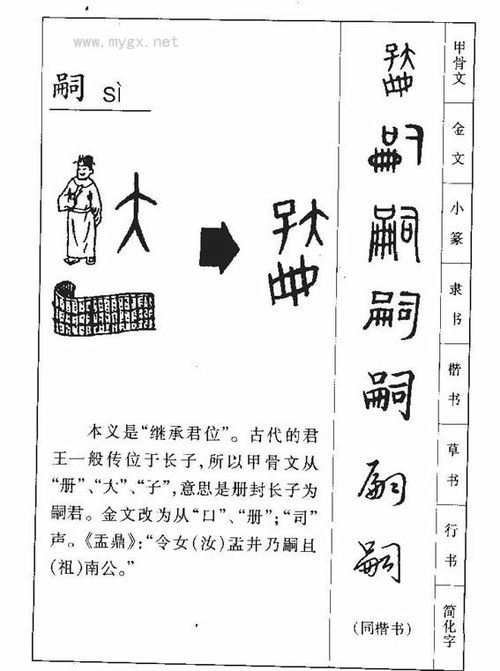 www.mygx.net
嗣 sì
本义是“继承君位”。古代的君
王一般传位于长子,所以甲骨文从
“册”、“大”、“子”,意思是册封长子为
嗣君。金文改为从“口”、“册”;“司”
声。《盂鼎》:“令女(汝)盂井乃嗣且
(祖)南公。”
嗣
嗣
嗣
嗣
嗣
嗣
嗣
(同楷书)
甲骨文
金文
小篆
隶书
楷书
草书
行书
简化字